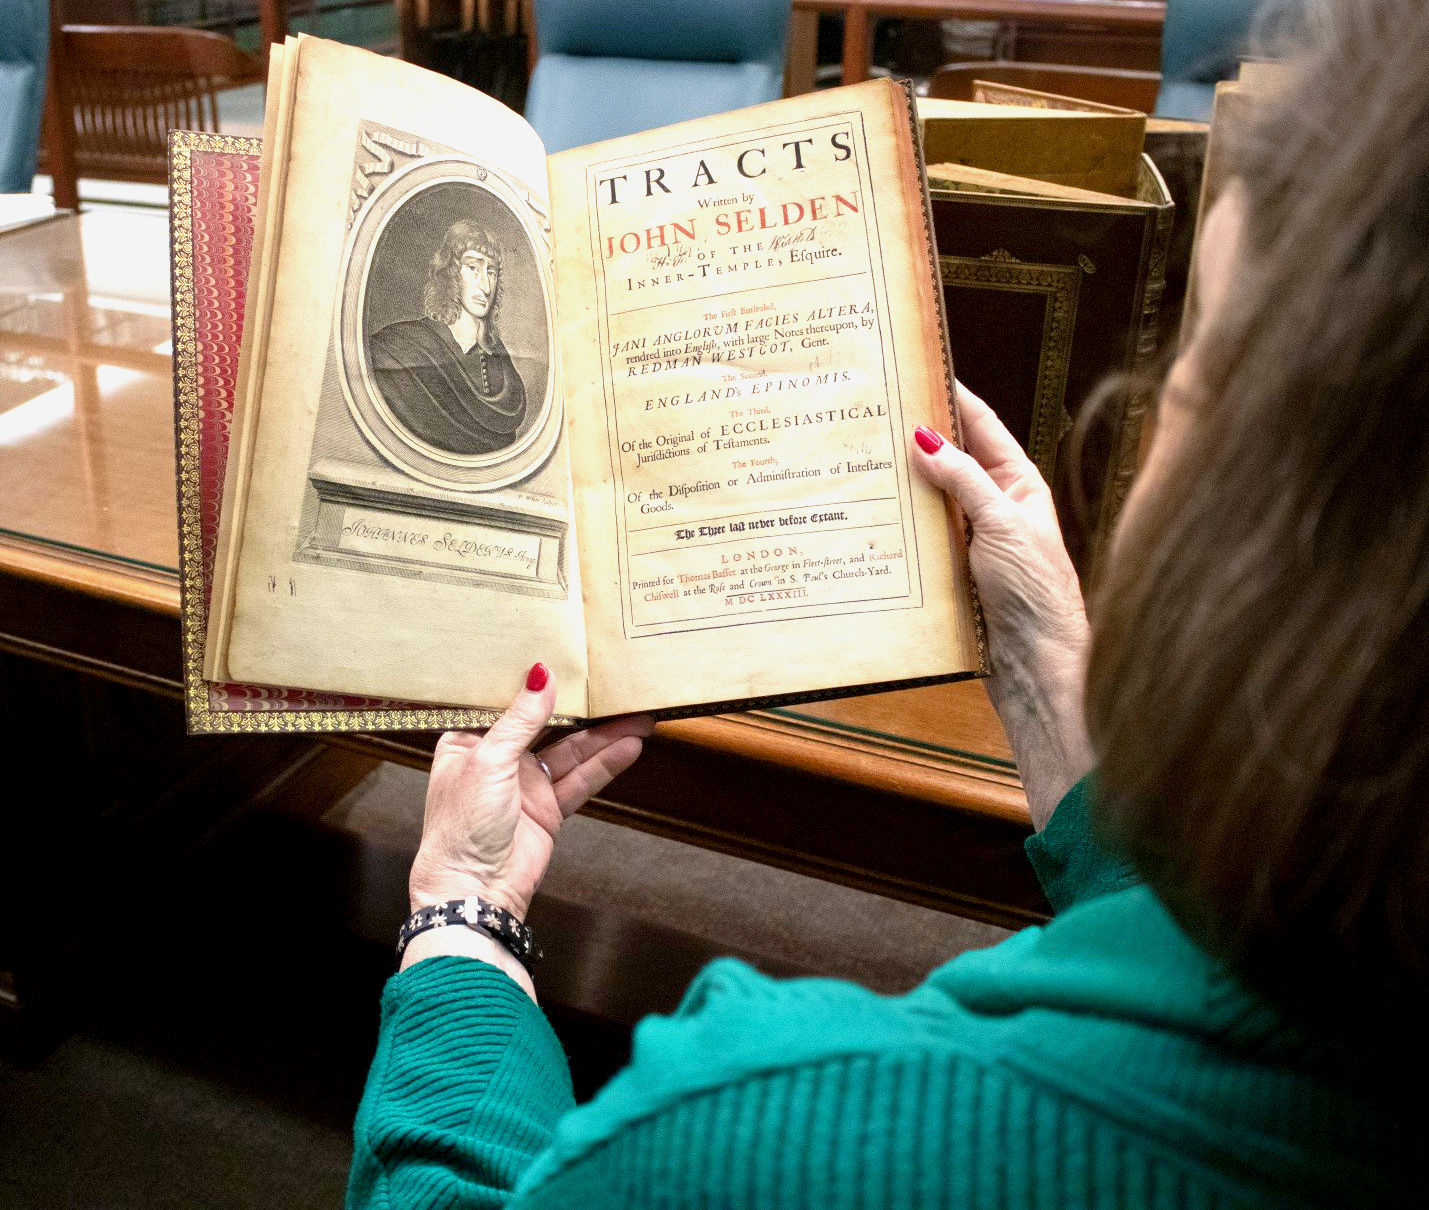 JOHANNES SELDENUS Arm
TRACTS
Written by
JOHN SELDEN
OF THE
INNER-TEMPLE, Eſquire.
The Firſt Entituled,
JANI ANGLORUM FACIES ALTERA,
rendred into Engliſh, with large Notes thereupon, by
REDMAN WESTCOT, Gent.
The Second,
ENGLAND's EPINOMIS.
The Third,
Of the Original of ECCLESIASTICAL
Juriſdictions of Teſtaments.
The Fourth,
Of the Diſpoſition or Adminiſtration of Inteſtates
Goods.
The Three laſt never before Extant.
LONDON,
Printed for Thomas Baſſet at the George in Fleet-ſtreet, and Richard
Chiſwell at the Roſe and Crown in S. Paul's Church-Yard.
M DC LXXXIII.